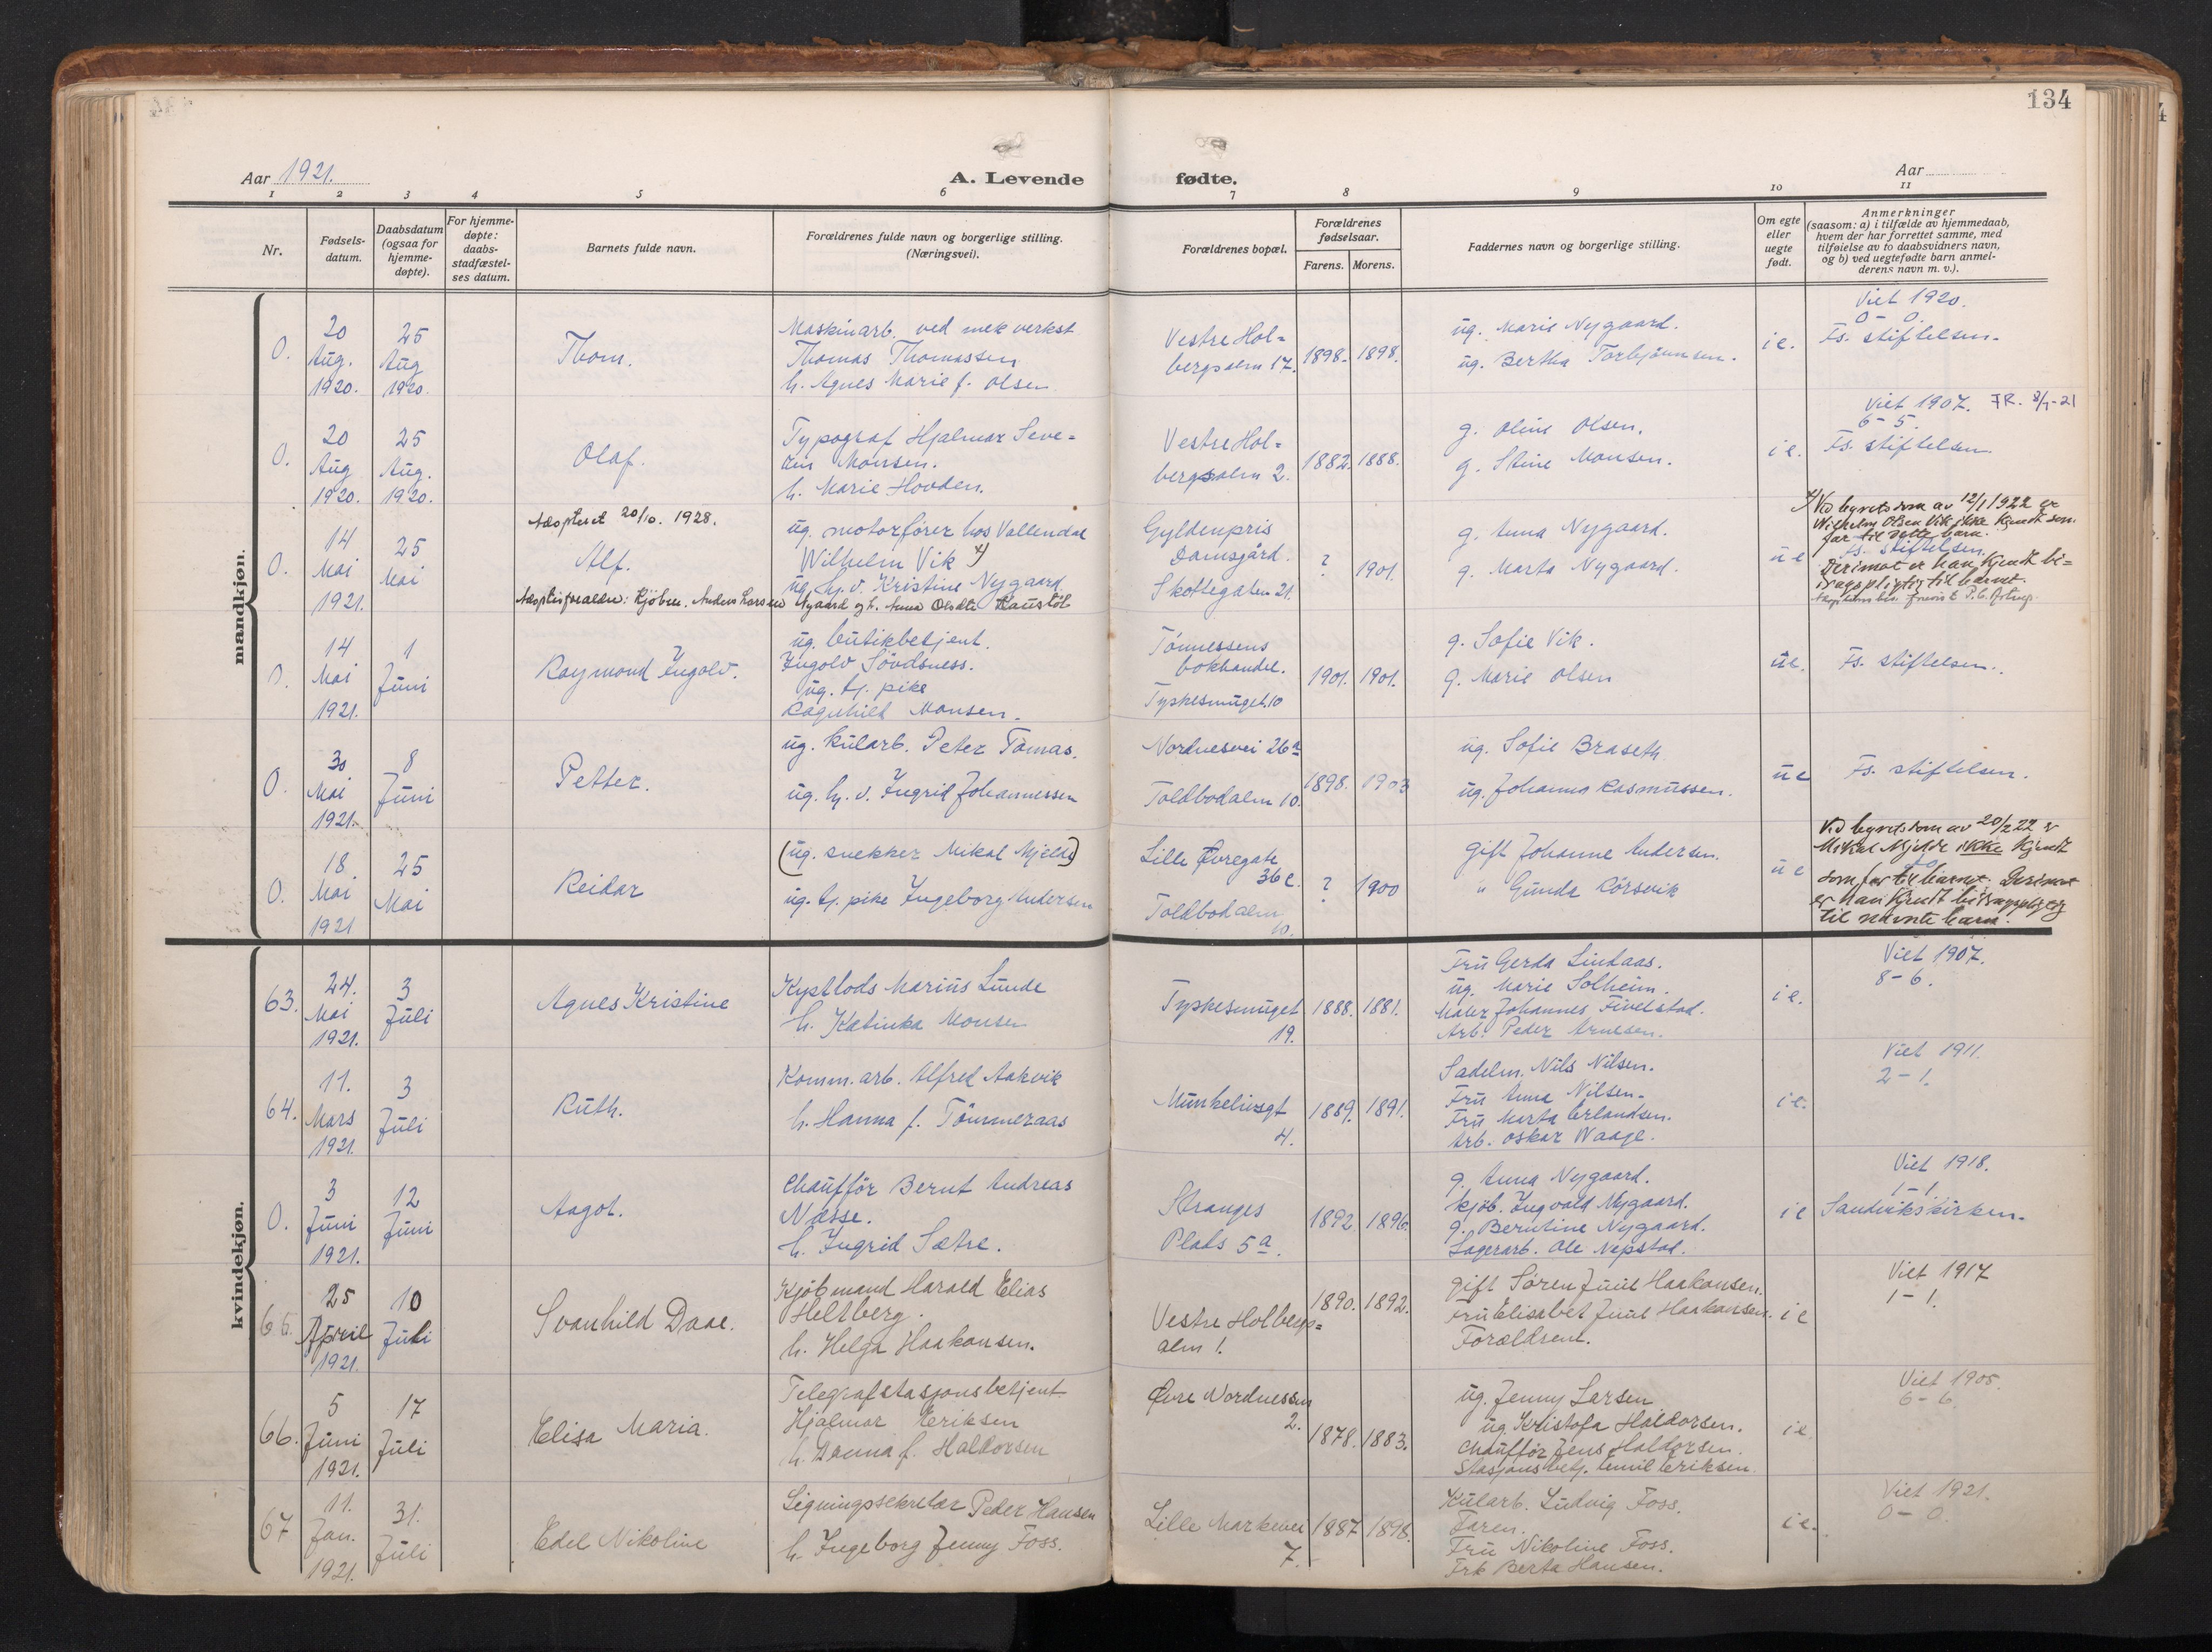 134
Aar 1921.
A. Levende fødte.
Aar
1 2 3 4 5 6 7 8 9 10 11
Nr.
Fødsels-
datum.
Daabsdatum
(ogsaa for
hjemme-
døpte).
For hjemme-
døpte:
daabs-
stadfæstel-
ses datum.
Barnets fulde navn.
Forældrenes fulde navn og borgerlige stilling.
(Næringsvei).
Forældrenes bopæl.
Forældrenes
fødselsaar.
Farens. Morens.
Faddernes navn og borgerlige stilling.
Om egte
eller
uegte
født.
Anmerkninger
(saasom: a) i tilfælde av hjemmedaab,
hvem der har forrettet samme, med
tilføielse av to daabsvidners navn,
og b) ved uegtefødte barn anmel-
derens navn m. v.).
mandkjøn.
0.
20
Aug.
1920.
25
Aug
1920.
Thom.
Maskinarb. ved mek verkst.
Thomas Thomassen
h. Agnes Marie f. Olsen
Vestre Hol=
bergsalm 17.
1898. 1898.
ug. Marie Nygaard.
ug. Bertha Torbjörnsen.
ie.
Viet 1920.
0-0.
Fs. stiftelsen.
0.
20
Aug
1920.
25
Aug.
1920.
Olaf.
Typograf Hjalmar Seve=
rin Monsen.
h. Marie Hovden.
Vestre Hol=
bergsalm 2.
1882. 1888.
g. Oline Olsen.
g. Stine Monsen.
ie.
Viet 1907. FR. 8/1-21
6-5.
Fs. stiftelsen.
0.
14
Mai
1921.
25
Mai
Adopteret 20/10. 1928.
Alf.
ug. motorfører hos Vallendal
Wilhelm Vik x)
ug. hj. v. Kristine Nygaard
Adoptivforældre: Kjöbm. Anders Larsen Nygaard og h. Anna Olsdtr. Haustöl
Gyldenpris
Damsgård.
Skottegaten 21.
? 1901.
g. Anna Nygaard.
g. Marta Nygaard.
ue
x) Ved byretsdom av 12/1 1922 er
Wilhelm Olsen Vik ikke kjendt som
far til dette barn.
Fs. stiftelsen.
Derimot er han kjendt bi=
dragspligtig til barnet.
0.
14
Mai
1921.
1
Juni
Raymond Ingolv.
ug. butikbetjent.
Ingolv Sövdsness.
ug. tj. pike
Ragnhild Monsen.
Tönnessens
bokhandel.
Tyskesmuget 10
1901. 1901.
g. Sofie Vik.
g. Marie Olsen
ue.
Fs. stiftelsen.
0.
30
Mai
1921.
8
Juni
Petter.
ug. kularb. Peter Tomas.
ug. hj. v. Ingrid Johannessen
Nordnesvei 26a
Toldbodalm 10.
1898. 1903
ug. Sofie Braseth
ug. Johanna Rasmussen.
ue
Fs. stiftelsen.
0.
18.
Mai
1921
25
Mai
Reidar
(ug. snekker Mikal Mjelde)
ug. tj. pike Ingeborg Andersen
Lille Øvregate
36c.
Toldbodalm
10.
? 1900
gift Johanne Andersen.
" Gunda Rörsvik
ue
Ved byretsdom av 20/2 22 er
Mikal Mjelde ikke kjendt
som far til barnet. Derimot
er han kjendt bidragspligtig
til nævnte barn.
kvindekjøn.
63.
24.
Mai
1921.
3
Juli
Agnes Kristine
Kystlods Marius Lunde
h. Katinka Monsen
Tyskesmuget
19.
1888. 1881.
Fru Gerda Lindaas.
ug. Marie Solheim.
Maler Johannes Fivelstad.
Arb. Peder Arnesen.
ie.
Viet 1907.
8-6.
64.
11.
Mars
1921.
3
Juli
Ruth.
Komm. arb. Alfred Aakvik
h. Hanna f. Tömmeraas
Munkelivsgt
4.
1889. 1891.
Sadelm. Nils Nilsen.
Fru Anna Nilsen.
Fru Marta Erlandsen.
Arb. Oskar Waage.
ie.
Viet 1911.
2-1.
0.
3
Juni
1921.
12
Juni
Aagot.
Chaufför Bernt Andreas
Næsse.
h. Ingrid Sætre.
Stranges
Plads 5a.
1892. 1896.
g. Anna Nygaard.
kjöb. Ingvald Nygaard.
g. Berntine Nygaard.
Lagerarb. Ole Nepstad.
ie
Viet 1918.
1-1.
Sandvikskirken.
65.
25
April
1921.
10
Juli
Svanhild Daae.
Kjöbmand Harald Elias
Heltberg.
h. Helga Haakonsen.
Vestre Holbergs=
alm 1.
1890. 1892.
gift Sören Juul Haakonsen.
Fru Elisabet Juul Haakonsen.
Forældrene.
ie
Viet 1917
1-1.
66.
5
Juni
1921.
17
Juli
Elisa Maria.
Telegrafstasjonsbetjent
Hjalmar Eriksen
h. Danna f. Haldorsen
Øvre Nordnessm
2.
1878. 1883.
ug. Jenny Larsen
ug. Kristofa Haldorsen.
Chauffør Jens Haldorsen.
Stasjonsbetj. Emil Eriksen.
ie
Viet 1905.
6-6.
67
11.
Jan.
1921.
31.
Juli
Edel Nikoline
Ligningssekretær Peder Hansen
h. Ingeborg Jenny Foss.
Lille Markevei
7.
1887. 1898.
Kularb. Ludvig Foss.
Faren.
Fru Nikoline Foss.
Frk Berta Hansen.
ie.
Viet 1921.
0-0.